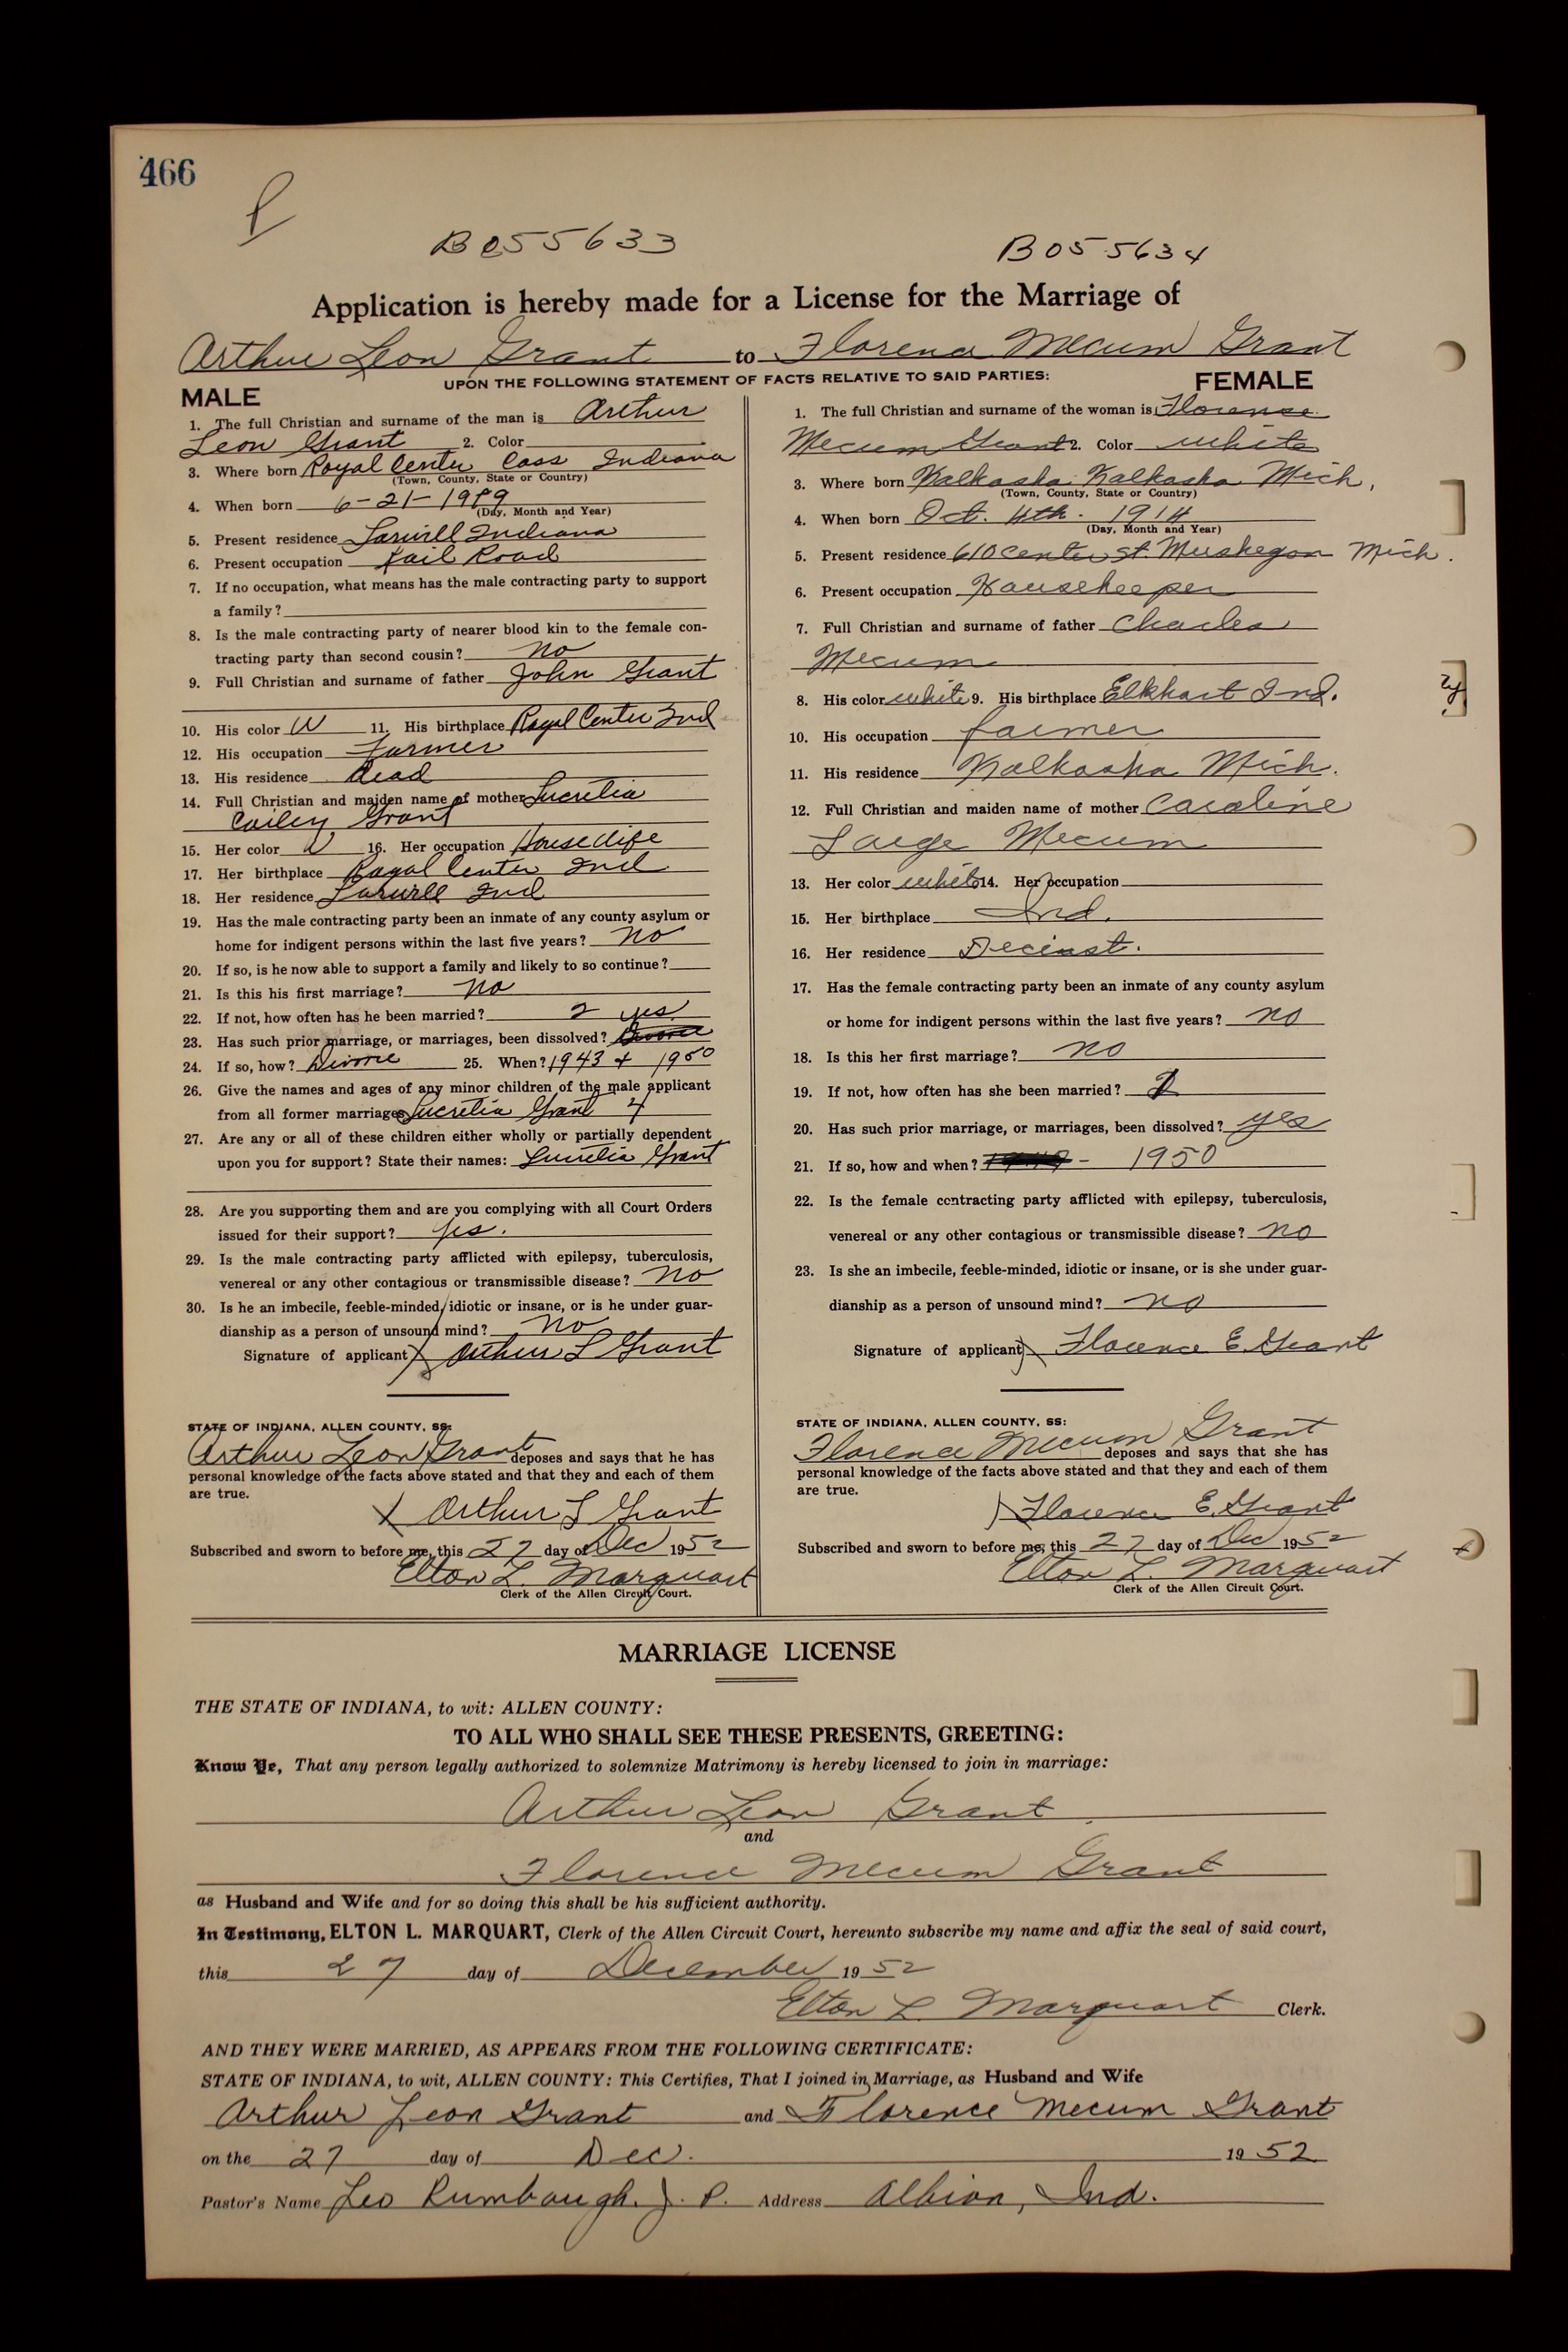 466
B055633
B055634
Application is hereby made for a License for the Marriage of
Arthur Leon Grant to Florence Mecum Grant
UPON THE FOLLOWING STATEMENT OF FACTS RELATIVE TO SAID PARTIES:
MALE
1. The full Christian and surname of the man is Arthur
Leon Grant 2. Color
3. Where born Royal Center Cass Indiana
(Town, County, State or Country)
4. When born 6-21-
(Day, Month and Year)
5. Present residence Larwill Indiana
6. Present occupation Rail Road
7. If no occupation, what means has the male contracting party to support
a family?
8. Is the male contracting party of nearer blood kin to the female con-
tracting party than second cousin? no
9. Full Christian and surname of father John Grant
10. His color W 11. His birthplace Royal Center Ind
12. His occupation Farmer
13. His residence dead
14. Full Christian and maiden name of mother Lucretia
Grant
15. Her color W 16. Her occupation Housewife
17. Her birthplace Royal Center Ind
18. Her residence Larwill Ind
19. Has the male contracting party been an inmate of any county asylum or
home for indigent persons within the last five years? no
20. If so, is he now able to support a family and likely to so continue?
21. Is this his first marriage? no
22. If not, how often has he been married? 2 yes
23. Has such prior marriage, or marriages, been dissolved? Divorce
24. If so, how? Divorce 25. When? 1943 + 1950
26. Give the names and ages of any minor children of the male applicant
from all former marriages Lucretia Grant 4
27. Are any or all of these children either wholly or partially dependent
upon you for support? State their names: Lucretia Grant
28. Are you supporting them and are you complying with all Court Orders
issued for their support? yes.
29. Is the male contracting party afflicted with epilepsy, tuberculosis,
venereal or any other contagious or transmissible disease? no
30. Is he an imbecile, feeble-minded, idiotic or insane, or is he under guar-
dianship as a person of unsound mind? no
Signature of applicant X Arthur L Grant
STATE OF INDIANA, ALLEN COUNTY, SS:
Arthur Leon Grant deposes and says that he has
personal knowledge of the facts above stated and that they and each of them
are true.
X Arthur L Grant
Subscribed and sworn to before me, this 27 day of Dec 1952
Elton L. Marquart
Clerk of the Allen Circuit Court.
FEMALE
1. The full Christian and surname of the woman is Florence
Mecum Grant 2. Color white
3. Where born Kalkaska Kalkaska Mich.
(Town, County, State or Country)
4. When born Oct. 4th. 1914
(Day, Month and Year)
5. Present residence 610 Center st. Muskegon Mich.
6. Present occupation Housekeeper
7. Full Christian and surname of father Charles
Mecum
8. His color white 9. His birthplace Elkhart Ind.
10. His occupation farmer
11. His residence Kalkaska Mich.
12. Full Christian and maiden name of mother Caroline
Large Mecum
13. Her color white 14. Her occupation
15. Her birthplace Ind.
16. Her residence Deceast.
17. Has the female contracting party been an inmate of any county asylum
or home for indigent persons within the last five years? no
18. Is this her first marriage? no
19. If not, how often has she been married?
20. Has such prior marriage, or marriages, been dissolved? yes
21. If so, how and when? - 1950
22. Is the female contracting party afflicted with epilepsy, tuberculosis,
venereal or any other contagious or transmissible disease? no
23. Is she an imbecile, feeble-minded, idiotic or insane, or is she under guar-
dianship as a person of unsound mind? no
Signature of applicant X Florence E. Grant
STATE OF INDIANA, ALLEN COUNTY, SS:
Florence Mecum Grant deposes and says that she has
personal knowledge of the facts above stated and that they and each of them
are true.
X Florence E. Grant
Subscribed and sworn to before me, this 27 day of Dec 1952
Elton L. Marquart
Clerk of the Allen Circuit Court.
MARRIAGE LICENSE
THE STATE OF INDIANA, to wit: ALLEN COUNTY:
TO ALL WHO SHALL SEE THESE PRESENTS, GREETING:
Know Ye, That any person legally authorized to solemnize Matrimony is hereby licensed to join in marriage:
Arthur Leon Grant
and
Florence Mecum Grant
as Husband and Wife and for so doing this shall be his sufficient authority.
In Testimony, ELTON L. MARQUART, Clerk of the Allen Circuit Court, hereunto subscribe my name and affix the seal of said court,
this 27 day of December 1952
Elton L. Marquart Clerk.
AND THEY WERE MARRIED, AS APPEARS FROM THE FOLLOWING CERTIFICATE:
STATE OF INDIANA, to wit, ALLEN COUNTY: This Certifies, That I joined in Marriage, as Husband and Wife
Arthur Leon Grant and Florence Mecum Grant
on the 27 day of Dec. 1952
Pastor's Name Leo Rumbaugh. J. P. Address Albion, Ind.